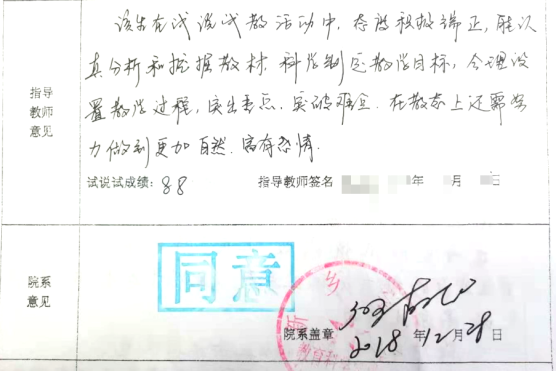 该生在试说试教活动中，态度积极端正，能认
真分析和挖掘教材，科学制定教学目标，合理设
置教学过程，突出重点，突破难点，在教态上还需努
力做到更加自然，富有感情。
指导
教师
意见
试说试成绩：88 指导教师签名 年 月 日
院系
意见
同意
院系盖章
2018年12月28日